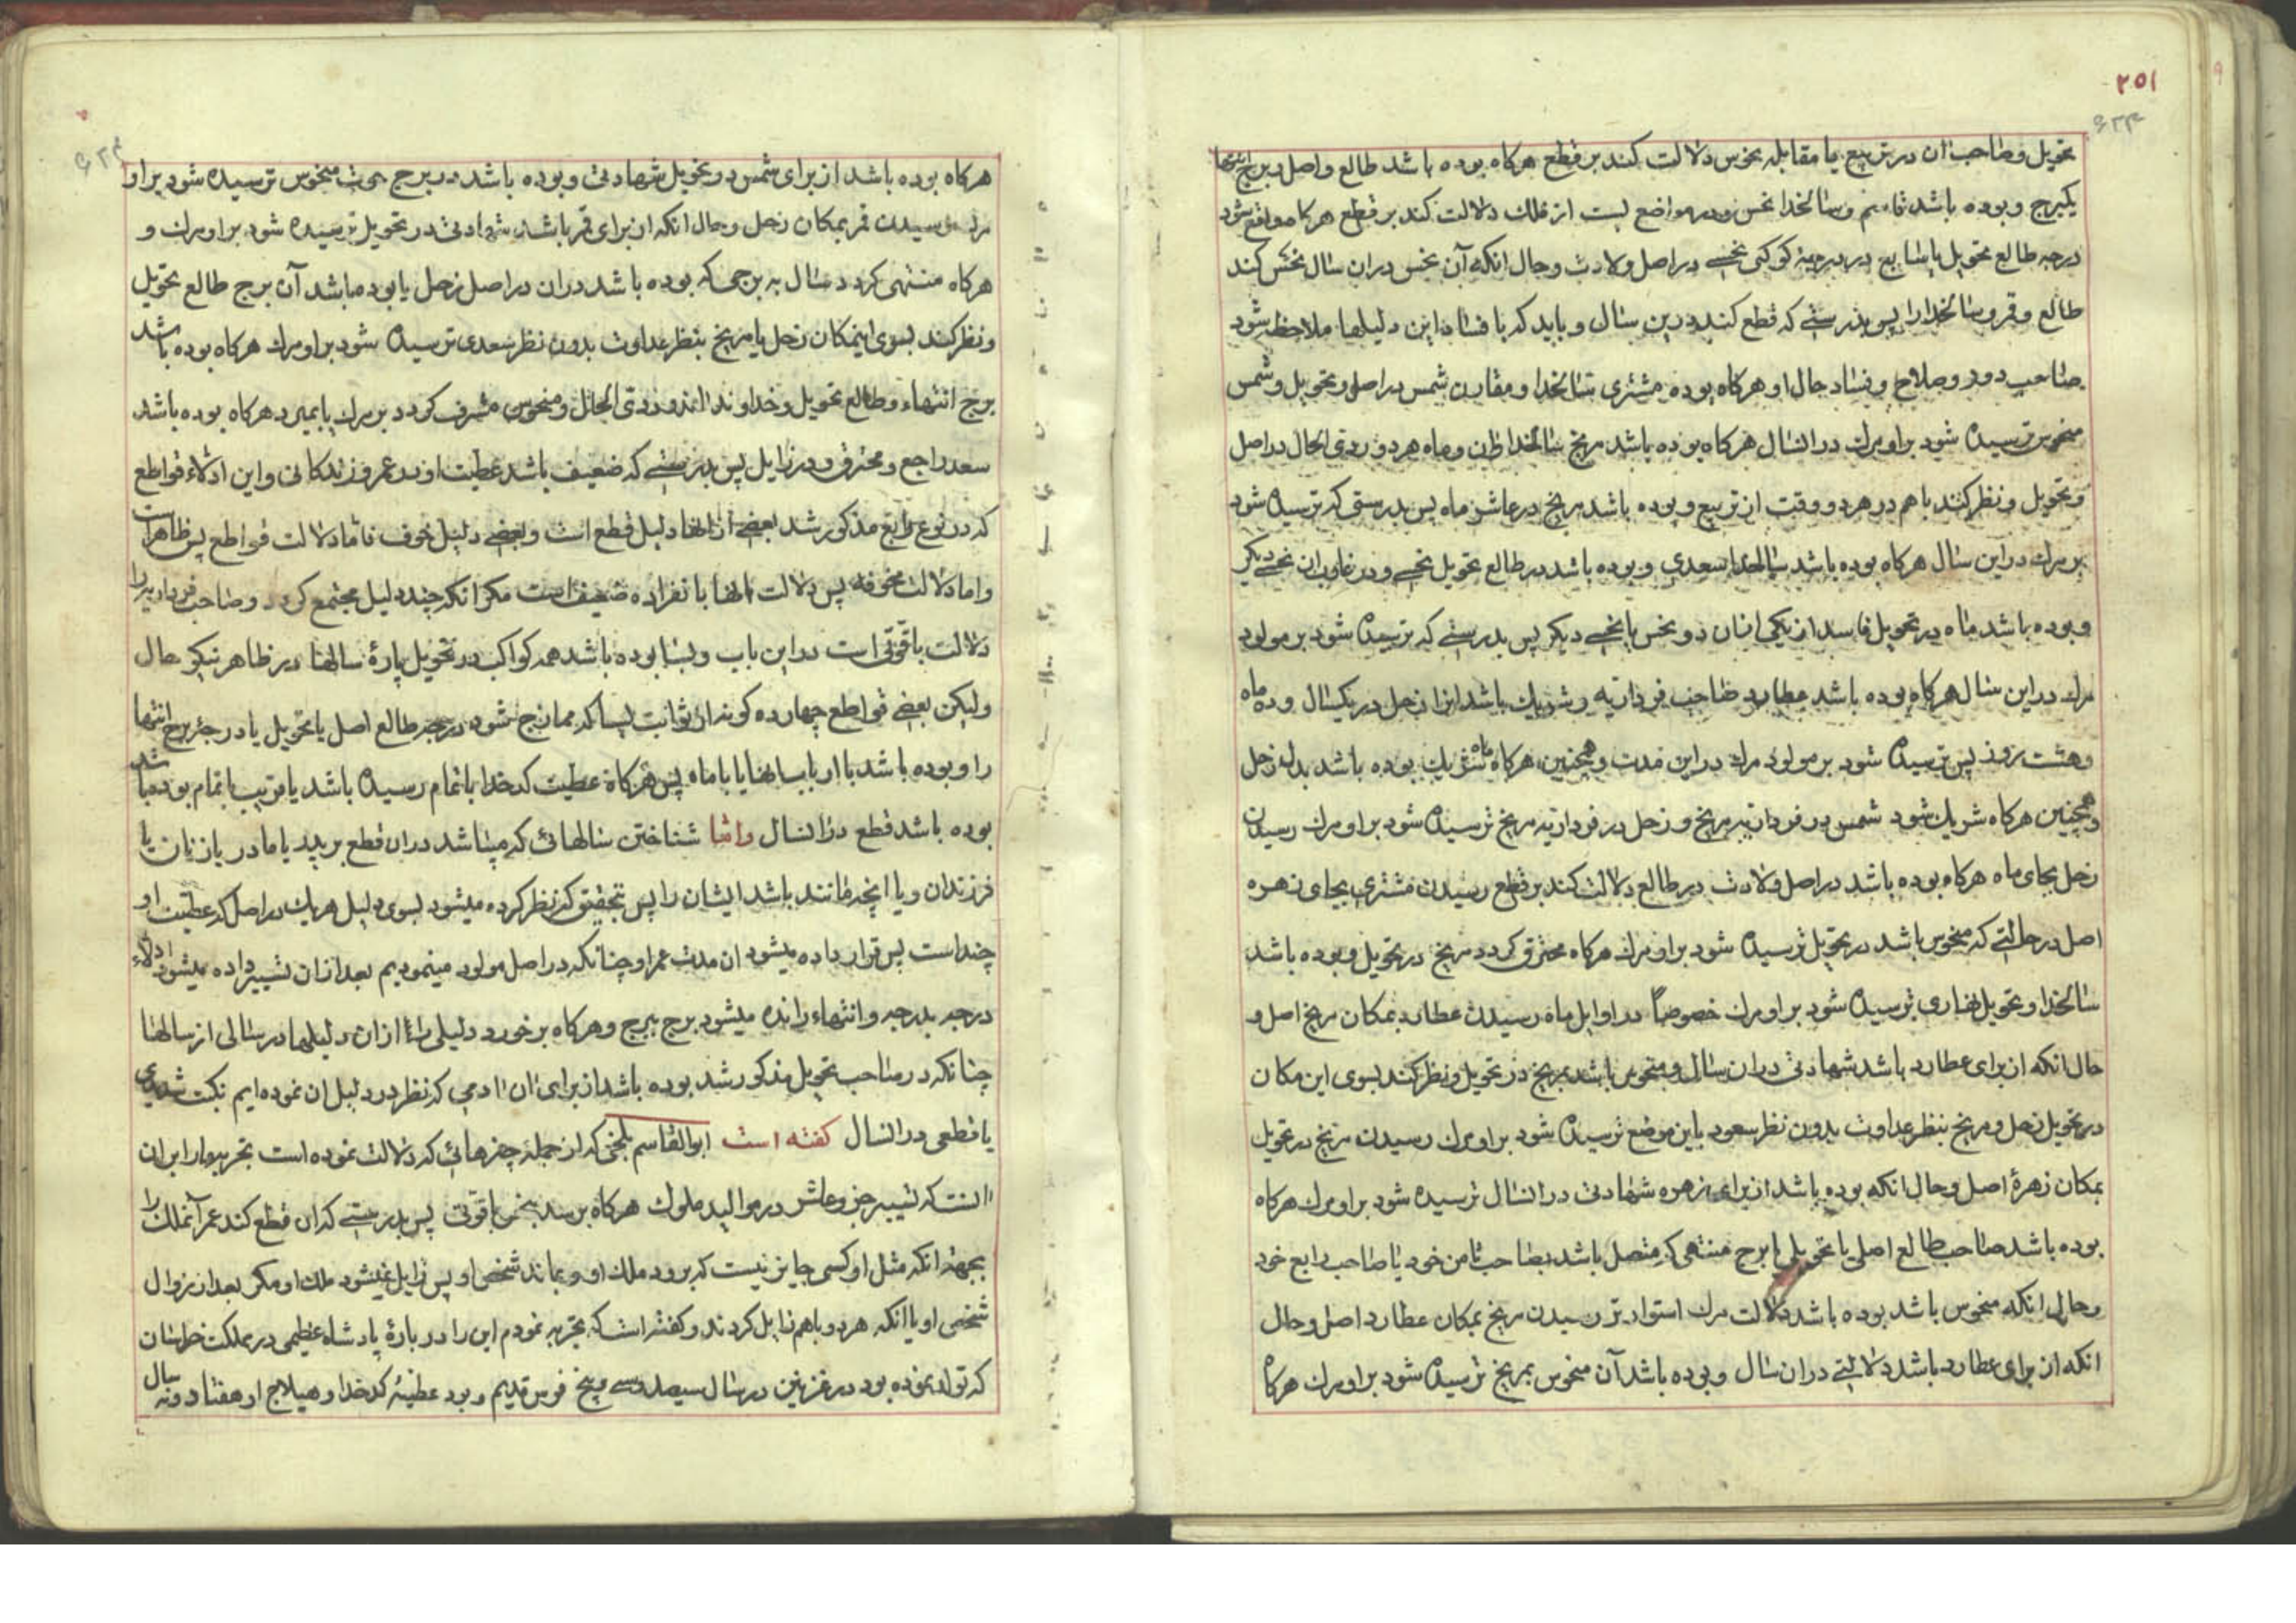 ٢٥١
تحویل و صاحب ان در تربیع یا مقابله بخوس دلالت کند بر قطع هرکاه بوده باشد طالع واصل و برج انتها
یکبرج و بوده باشد و سالخدا نحس و در مواضع پست از فلک دلالت کند بر قطع هرکاه موافق شود
درجه طالع تحویل یا سابع در درجهٔ کوکبی نحسے در اصل ولادت و حال انکه آن نحس دران سال نحس کند
طالع و قمر و سالخدا را پس بدرستے که قطع کند درین سال و باید که با فساد این دلیلها ملاحظه شود
صاحب دور و صلاح و فساد حال او هرکاه بوده مشتری سالخدا و مقارن شمس در اصل و تحویل و شمس
منحوس ترسیده شود بر او مرك در انسال هرکاه بوده باشد مریخ سالخدا و ماه هر دو ردی الحال در اصل
و تحویل و نظر کنند باهم در هر دو وقت از تربیع و بوده باشد مریخ در عاشر ماه پس بدرستی که ترسیده شود
بر مرك در این سال هرکاه بوده باشد سالخدا سعدی و بوده باشد در طالع تحویل نحسے و در غارب ان نحسے دیکر
و بوده باشد ماه در تحویل فاسد از یکی ازان دو نحس یا نحسے دیکر پس بدرستے که ترسیده شود بر مولود
مرك در این سال هرکاه بوده باشد عطارد صاحب فرداریه و شریك باشد او را زحل در یکسال و ده ماه
و هشت روز پس ترسیده شود بر مولود مرك در این مدت و همچنین هرکاه ماه شریك بوده باشد بدل زحل
و همچنین هرکاه شریك شود شمس در فرداریه مریخ و زحل در فرداریه مریخ ترسیده شود بر او مرك رسیدن
زحل بجای ماه هرکاه بوده باشد در اصل ولادت در طالع دلالت کند بر قطع رسیدن مشتری بجای زهره
اصل در حالتے که منحوس باشد در تحویل ترسیده شود بر او مرك هرکاه محترق کردد مریخ در تحویل و بوده باشد
سالخدا و تحویل نهاری ترسیده شود بر او مرك خصوصاً در اوایل ماه رسیدن عطارد بمکان مریخ اصل و
حال انکه از برای عطارد باشد شهادتی دران سال و منحوس باشد بمریخ در تحویل و نظر کند بسوی این مکان
در تحویل زحل و مریخ بنظر عداوت بدون نظر سعود باین موضع ترسیده شود بر او مرك رسیدن مریخ در تحویل
بمکان زهرهٔ اصل و حال انکه بوده باشد از برای زهره شهادتی در انسال ترسیده شود بر او مرك هرکاه
بوده باشد صاحب طالع اصل یا تحویلی یا برج منتهی که متصل باشد بصاحب ثامن خود یا صاحب رابع خود
و حال انکه منحوس باشد بوده باشد دلالت مرك استوارتر رسیدن مریخ بمکان عطارد اصل و حال
انکه از برای عطارد باشد دلالتے دران سال و بوده باشد آن منحوس بمریخ ترسیده شود بر او مرك هرکا
هرکاه بوده باشد از برای شمس در تحویل شهادتی و بوده باشد در برج منحوس ترسیده شود بر او
مرك رسیدن قمر بمکان زحل و حال انکه از برای قمر باشد شهادتی در تحویل ترسیده شود بر او مرك و
هرکاه منتهی کردد سال به برجی که بوده باشد دران در اصل زحل یا بوده باشد آن برج طالع تحویل
و نظر کند بسوی اینمکان زحل یا مریخ بنظر عداوت بدون نظر سعدی ترسیده شود بر او مرك هرکاه بوده باشد
برج انتهاء و طالع تحویل و خداوند ردی الحال و منحوس مشرف کردد بر مرك یا بمیرد هرکاه بوده باشد
سعد راجع و محترق و در زایل پس بدرستے که ضعیف باشد عطیت او در عمر و زندکانی و این ادلاء قواطع
که در نوع رابع مذکور شد بعضے از انها دلیل قطع است و بعضے دلیل خوف فاما دلالت قواطع پس ظاهر است
و اما دلالت مخوفه پس دلالت انها بانفراده ضعیف است مکر انکه چند دلیل مجتمع کردد و صاحب فرداریه را
دلالت باقوتی است در این باب و بسا بوده باشد همه کواکب در تحویل پارهٔ سالها در ظاهر نیکو حال
ولیکن بعضے قواطع چهارده کونه از ثوابت بسا که ممازج شود درجه طالع اصل یا تحویل یا درجهٔ برج انتها
را و بوده باشد با ارباب انها یا با ماه پس هرکاه عطیت کدخدا باتمام رسیده باشد یا قریب باتمام بوده باشد
بوده باشد قطع در انسال واما شناختن سالهائی که میباشد دران قطع بر پدر یا مادر یا زنان یا
فرزندان و یا انچه مانند باشد ایشان را پس بتحقیق که نظر کرده میشود بسوی دلیل هریك در اصل که عطیت او
چند است پس قرار داده میشود ان مدت عمر او چنانکه در اصل مولود مینمودیم بعد ازان تسییر داده میشود ادلاء
درجه بدرجه و انتهاء رانده میشود برج ببرج و هرکاه برخورد دلیلی را ازان دلیلها در سالی از سالها
چنانکه در صاحب تحویل مذکور شد بوده باشد از برای ان ادمی که نظر در دلیل ان نموده ایم نکبت شدیدی
یا قطعی در انسال کفته است ابوالقاسم بلخی که از جمله چیزهائی که دلالت نموده است تجربه ما را بران
انست که تسییر جزو عاشر در موالید ملوك هرکاه برسد بنحس باقوتی پس بدرستے که ان قطع کند عمر آنملك را
بجهة انکه مثل او کسی جایز نیست که برود ملك او و بماند شخص او پس زایل نمیشود ملك او مکر بعد از زوال
شخص او یا انکه هر دو باهم زایل کردند و کفته است که تجربه نمودم این را در بارهٔ پادشاه عظیمی در مملکت خراسان
که تولد نموده بود در غزنین در سال سیصد و سے و پنج فرس قدیم و بود عطیهٔ کدخدا و هیلاج او هفتاد و نه سال